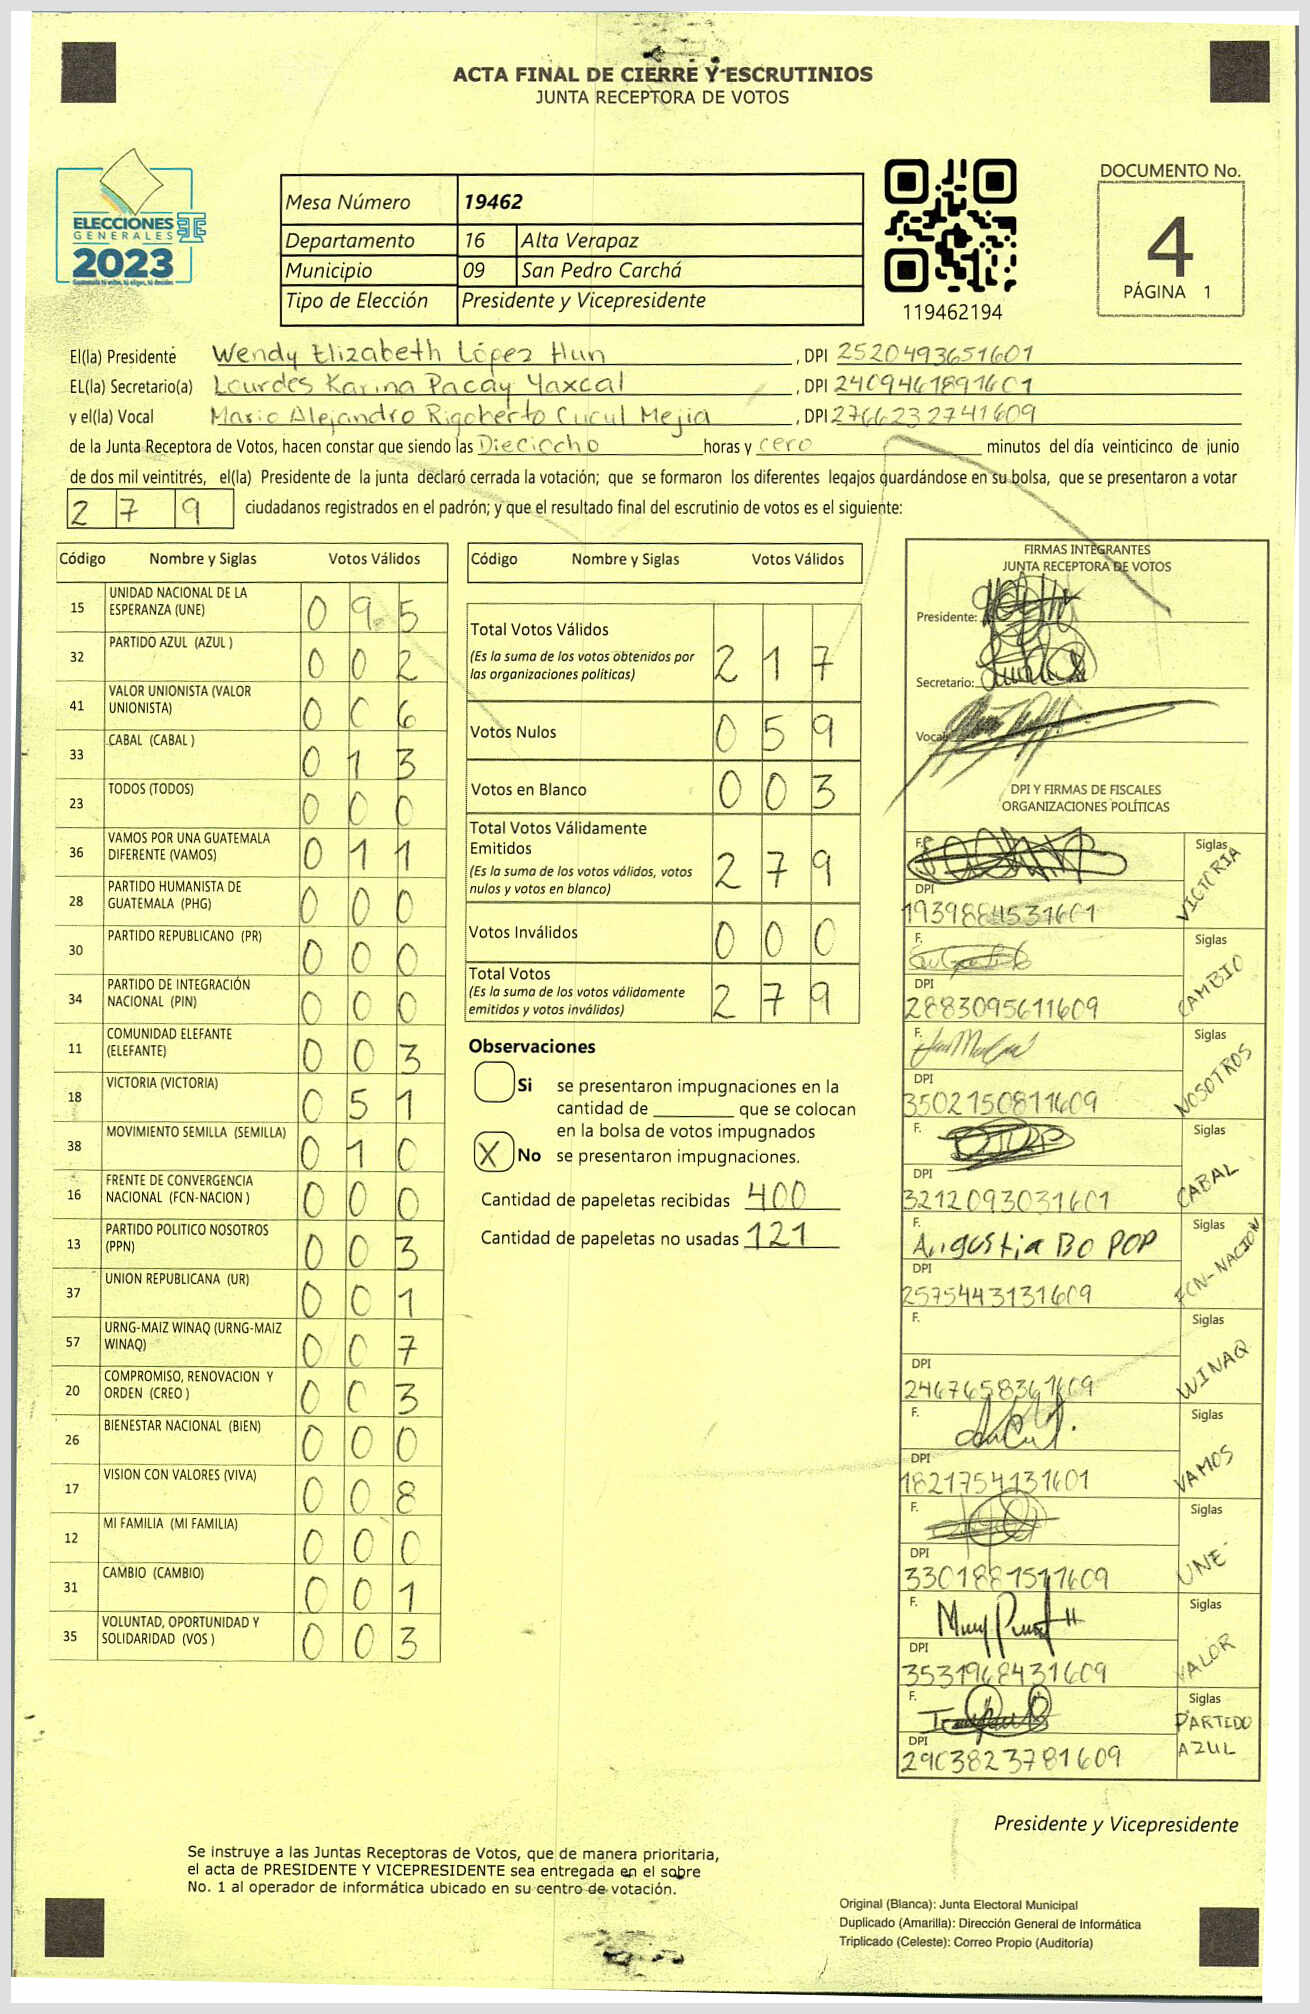 ACTA FINAL DE CIERRE Y ESCRUTINIOS
JUNTA RECEPTORA DE VOTOS
ELECCIONES
GENERALES
2023
TSE
Mesa Número 19462
Departamento 16 Alta Verapaz
Municipio 09 San Pedro Carchá
Tipo de Elección Presidente y Vicepresidente
119462194
DOCUMENTO No.
4
PÁGINA 1
El(la) Presidente Wendy Elizabeth López Hun, DPI 2520493651601
EL(la) Secretario(a) Lourdes Karina Pacay Yaxcal, DPI 2409461891601
y el(la) Vocal Mario Alejandro Rigoberto Cucul Mejia, DPI 2766232741609
de la Junta Receptora de Votos, hacen constar que siendo las Dieciocho horas y cero minutos del día veinticinco de junio
de dos mil veintitrés, el(la) Presidente de la junta declaró cerrada la votación; que se formaron los diferentes legajos guardándose en su bolsa, que se presentaron a votar
2 7 9 ciudadanos registrados en el padrón; y que el resultado final del escrutinio de votos es el siguiente:
Código Nombre y Siglas Votos Válidos
15 UNIDAD NACIONAL DE LA ESPERANZA (UNE) 0 9 5
32 PARTIDO AZUL (AZUL ) 0 0 2
41 VALOR UNIONISTA (VALOR UNIONISTA) 0 0 6
33 CABAL (CABAL ) 0 1 3
23 TODOS (TODOS) 0 0 0
36 VAMOS POR UNA GUATEMALA DIFERENTE (VAMOS) 0 1 1
28 PARTIDO HUMANISTA DE GUATEMALA (PHG) 0 0 0
30 PARTIDO REPUBLICANO (PR) 0 0 0
34 PARTIDO DE INTEGRACIÓN NACIONAL (PIN) 0 0 0
11 COMUNIDAD ELEFANTE (ELEFANTE) 0 0 3
18 VICTORIA (VICTORIA) 0 5 1
38 MOVIMIENTO SEMILLA (SEMILLA) 0 1 0
16 FRENTE DE CONVERGENCIA NACIONAL (FCN-NACION ) 0 0 0
13 PARTIDO POLITICO NOSOTROS (PPN) 0 0 3
37 UNION REPUBLICANA (UR) 0 0 1
57 URNG-MAIZ WINAQ (URNG-MAIZ WINAQ) 0 0 7
20 COMPROMISO, RENOVACION Y ORDEN (CREO ) 0 0 3
26 BIENESTAR NACIONAL (BIEN) 0 0 0
17 VISION CON VALORES (VIVA) 0 0 8
12 MI FAMILIA (MI FAMILIA) 0 0 0
31 CAMBIO (CAMBIO) 0 0 1
35 VOLUNTAD, OPORTUNIDAD Y SOLIDARIDAD (VOS ) 0 0 3
Código Nombre y Siglas Votos Válidos
Total Votos Válidos 2 1 7
(Es la suma de los votos obtenidos por
las organizaciones políticas)
Votos Nulos 0 5 9
Votos en Blanco 0 0 3
Total Votos Válidamente
Emitidos 2 7 9
(Es la suma de los votos válidos, votos
nulos y votos en blanco)
Votos Inválidos 0 0 0
Total Votos 2 7 9
(Es la suma de los votos válidamente
emitidos y votos inválidos)
Observaciones
Si se presentaron impugnaciones en la
cantidad de ________ que se colocan
en la bolsa de votos impugnados
X No se presentaron impugnaciones.
Cantidad de papeletas recibidas 400
Cantidad de papeletas no usadas 121
FIRMAS INTEGRANTES
JUNTA RECEPTORA DE VOTOS
Presidente:
Secretario:
Vocal:
DPI Y FIRMAS DE FISCALES
ORGANIZACIONES POLÍTICAS
F. Siglas VICTORIA
DPI
1939884531601
F. Siglas CAMBIO
DPI
2883095611609
F. Siglas NOSOTROS
DPI
3502150811609
F. Siglas CABAL
DPI
3212093031601
F. Angustia Bo POP Siglas FCN-NACION
DPI
2575443131609
F. Siglas WINAQ
DPI
2467658361609
F. Siglas VAMOS
DPI
1821754131601
F. Siglas UNE
DPI
3301881511609
F. Siglas VALOR
DPI
3531968431609
F. Siglas PARTIDO AZUL
DPI
2903823781609
Presidente y Vicepresidente
Se instruye a las Juntas Receptoras de Votos, que de manera prioritaria,
el acta de PRESIDENTE Y VICEPRESIDENTE sea entregada en el sobre
No. 1 al operador de informática ubicado en su centro de votación.
Original (Blanca): Junta Electoral Municipal
Duplicado (Amarilla): Dirección General de Informática
Triplicado (Celeste): Correo Propio (Auditoría)